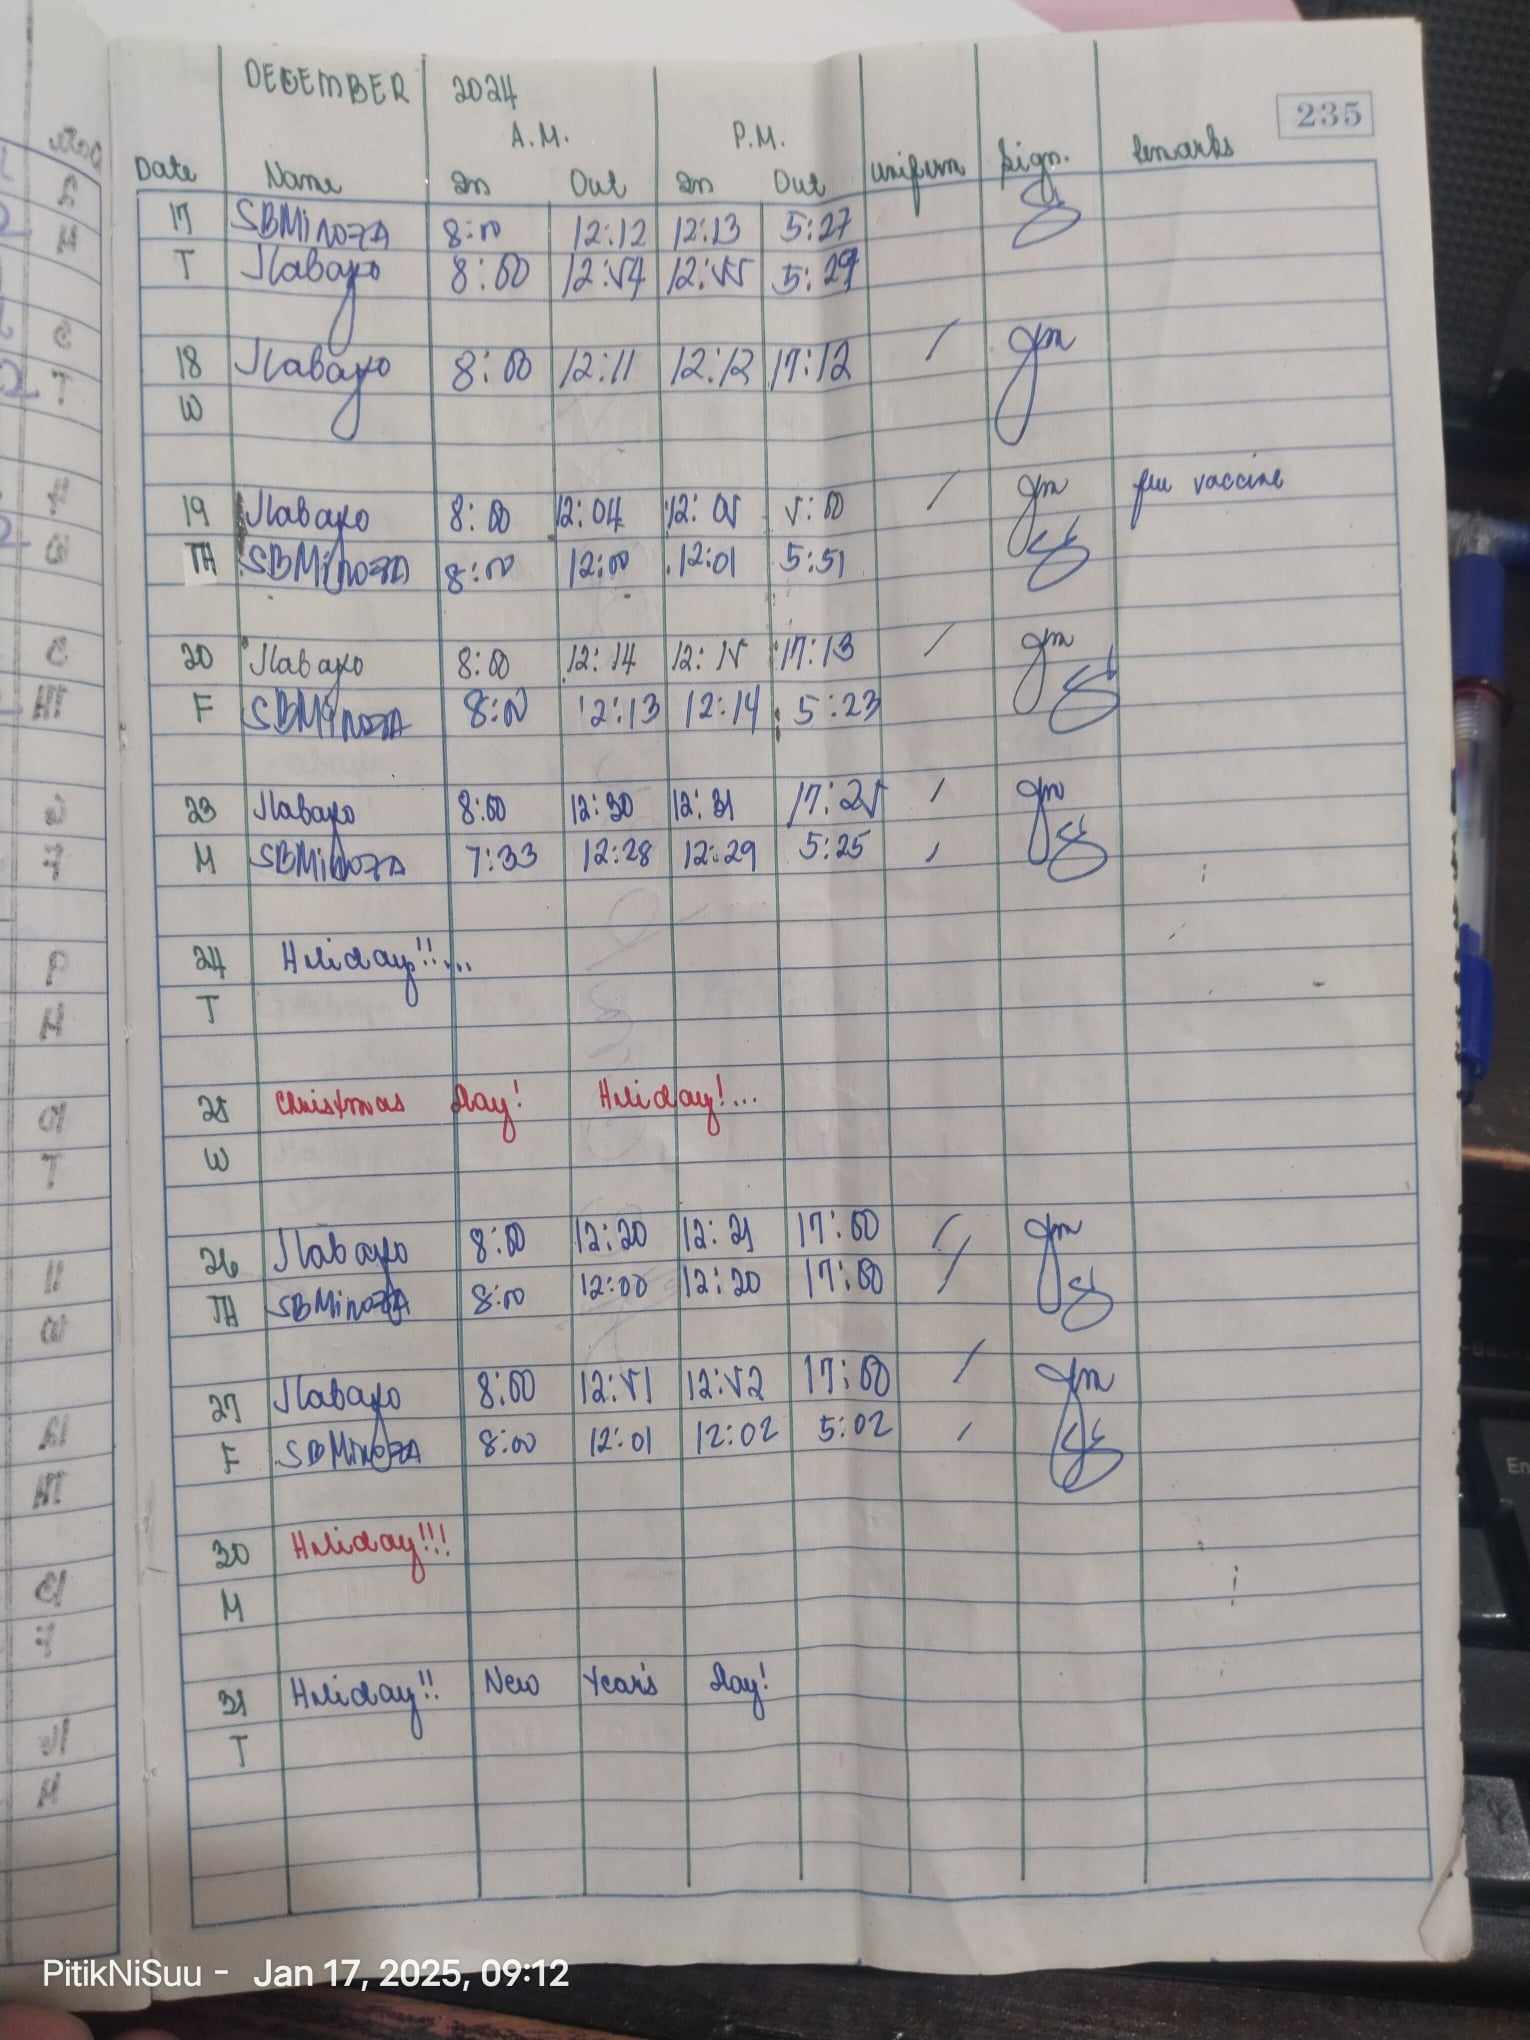 DECEMBER 2024
235
A.M. P.M.
Date Name In Out In Out Uniform Sign. Remarks
17 SBMinoza 8:00 12:12 12:13 5:27
T Jlabayo 8:00 12:54 12:55 5:29
18 Jlabayo 8:00 12:11 12:12 17:12 /
W
19 Jlabayo 8:00 12:04 12:05 5:00 / flu vaccine
TH SBMinoza 8:00 12:00 12:01 5:51
20 Jlabayo 8:00 12:14 12:15 17:13 /
F SBMinoza 8:00 12:13 12:14 5:23
23 Jlabayo 8:00 12:30 12:31 17:25 /
M SBMinoza 7:33 12:28 12:29 5:25 /
24 Holiday!!...
T
25 Christmas Day! Holiday!...
W
26 Jlabayo 8:00 12:20 12:21 17:00 /
TH SBMinoza 8:00 12:00 12:20 17:00 /
27 Jlabayo 8:00 12:51 12:52 17:00 /
F SBMinoza 8:00 12:01 12:02 5:02 /
30 Holiday!!!
M
31 Holiday!! New Year's Day!
T
PitikNiSuu - Jan 17, 2025, 09:12